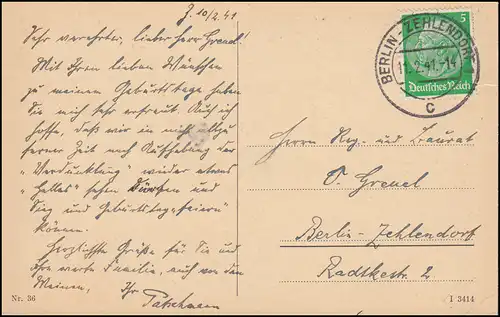 Z. 10/2. 41
Sehr verehrter, lieber Herr Greuel.
Mit Ihren lieben Wünschen
zu meinem Geburtstage haben
Sie mich sehr erfreut. Auch ich
hoffe, daß wir in nicht allzu
ferner Zeit nach Aufhebung der
"Verdunklung" wieder etwas
"Helles" sehen dürfen und
Sieg und Geburtstag "feiern"
können.
Herzlichste Grüße für Sie und
Ihre werte Familie, auch von den
Meinen, Ihr
Nr. 36
BERLIN-ZEHLENDORF
11.2.41.-14
C
5
Deutsches Reich
Herrn Reg. und Baurat
O. Greuel
Berlin-Zehlendorf
Radtkestr. 2
I 3414